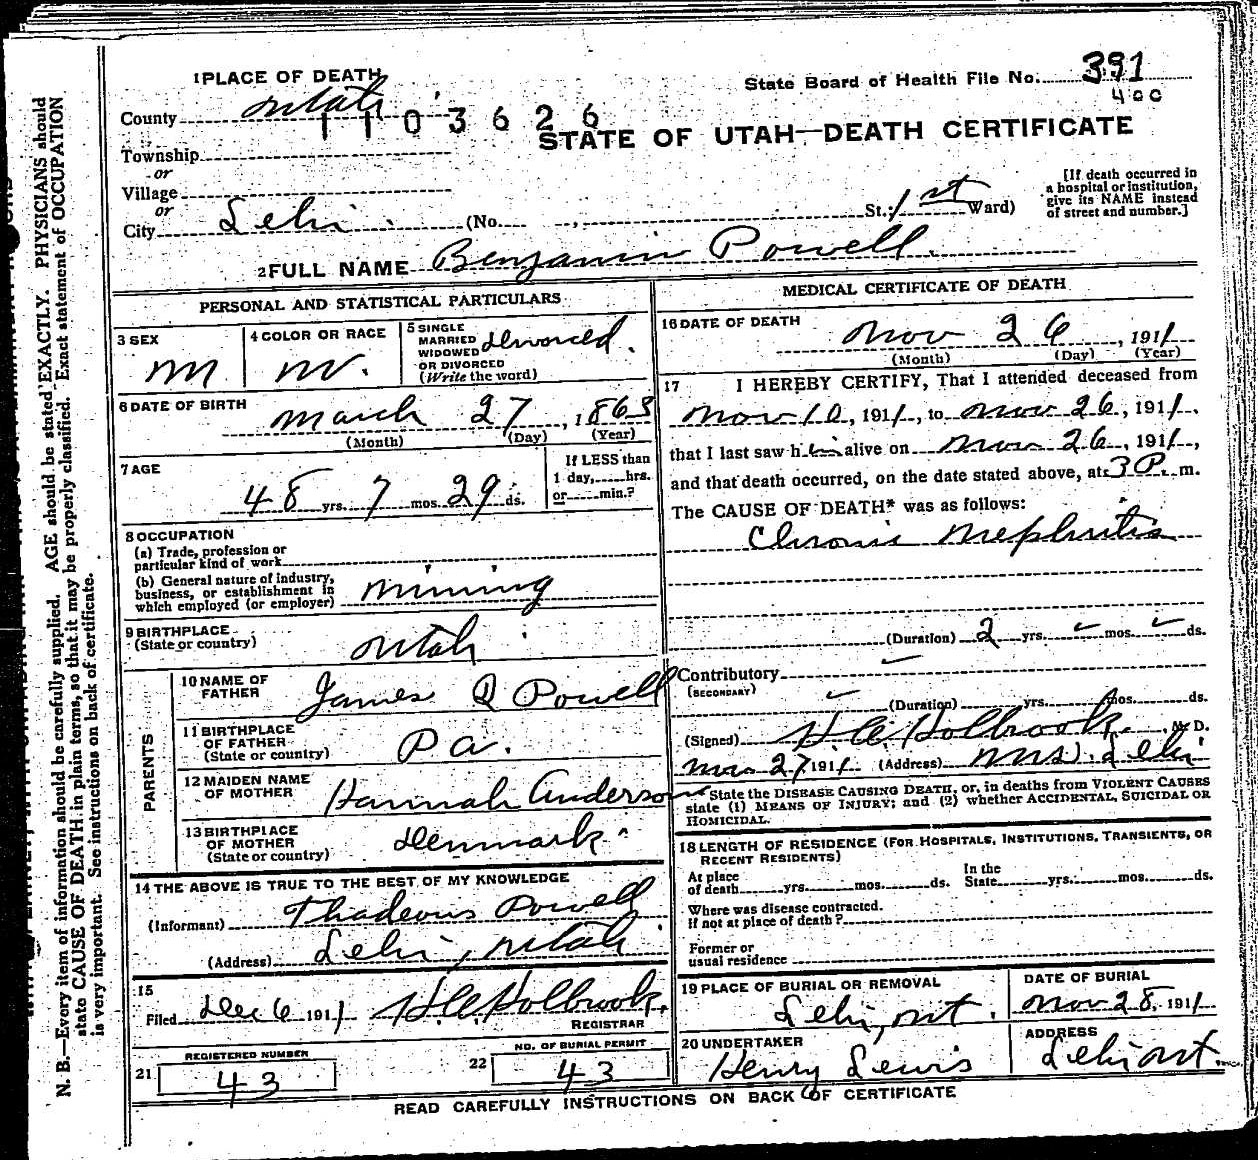 1 PLACE OF DEATH
State Board of Health File No. 391
400
County Utah
1103626
STATE OF UTAH—DEATH CERTIFICATE
Township
or
Village
or
City Lehi (No. , St.; 1st Ward)
[If death occurred in
a hospital or institution,
give its NAME instead
of street and number.]
2 FULL NAME Benjamin Powell.
PERSONAL AND STATISTICAL PARTICULARS
3 SEX
M
4 COLOR OR RACE
W.
5 SINGLE
MARRIED
WIDOWED
OR DIVORCED
(Write the word)
Divorced.
6 DATE OF BIRTH
March 27, 1863
(Month) (Day) (Year)
7 AGE
48 yrs. 7 mos. 29 ds.
If LESS than
1 day, hrs.
or min.?
8 OCCUPATION
(a) Trade, profession or
particular kind of work
(b) General nature of industry,
business, or establishment in
which employed (or employer) Mining
9 BIRTHPLACE
(State or country)
Utah
PARENTS
10 NAME OF
FATHER
James Q Powell
11 BIRTHPLACE
OF FATHER
(State or country)
Pa.
12 MAIDEN NAME
OF MOTHER
Hannah Anderson
13 BIRTHPLACE
OF MOTHER
(State or country)
Denmark
14 THE ABOVE IS TRUE TO THE BEST OF MY KNOWLEDGE
(Informant) Thadeous Powell
(Address) Lehi, Utah
15
Filed Dec 6 1911 H.C. Holbrook.
REGISTRAR
REGISTERED NUMBER
21 43
NO. OF BURIAL PERMIT
22 43
MEDICAL CERTIFICATE OF DEATH
16 DATE OF DEATH
Nov 26, 1911
(Month) (Day) (Year)
17 I HEREBY CERTIFY, That I attended deceased from
Nov 10, 1911, to Nov 26, 1911,
that I last saw him alive on Nov 26, 1911,
and that death occurred, on the date stated above, at 3 P. m.
The CAUSE OF DEATH* was as follows:
Chronic Nephritis
(Duration) 2 yrs. mos. ds.
Contributory
(SECONDARY)
(Duration) yrs. mos. ds.
(Signed) H.C. Holbrook. M. D.
27 1911 (Address) Lehi
State the DISEASE CAUSING DEATH, or, in deaths from VIOLENT CAUSES
state (1) MEANS OF INJURY; and (2) whether ACCIDENTAL, SUICIDAL OR
HOMICIDAL.
18 LENGTH OF RESIDENCE (FOR HOSPITALS, INSTITUTIONS, TRANSIENTS, OR
RECENT RESIDENTS)
At place
of death yrs. mos. ds.
In the
State yrs. mos. ds.
Where was disease contracted.
If not at place of death?
Former or
usual residence
19 PLACE OF BURIAL OR REMOVAL
Lehi, Ut.
DATE OF BURIAL
Nov 28, 1911
20 UNDERTAKER
Henry Lewis
ADDRESS
Lehi Ut.
READ CAREFULLY INSTRUCTIONS ON BACK OF CERTIFICATE
N. B.—Every item of information should be carefully supplied. AGE should be stated EXACTLY. PHYSICIANS should
state CAUSE OF DEATH in plain terms, so that it may be properly classified. Exact statement of OCCUPATION
is very important. See instructions on back of certificate.